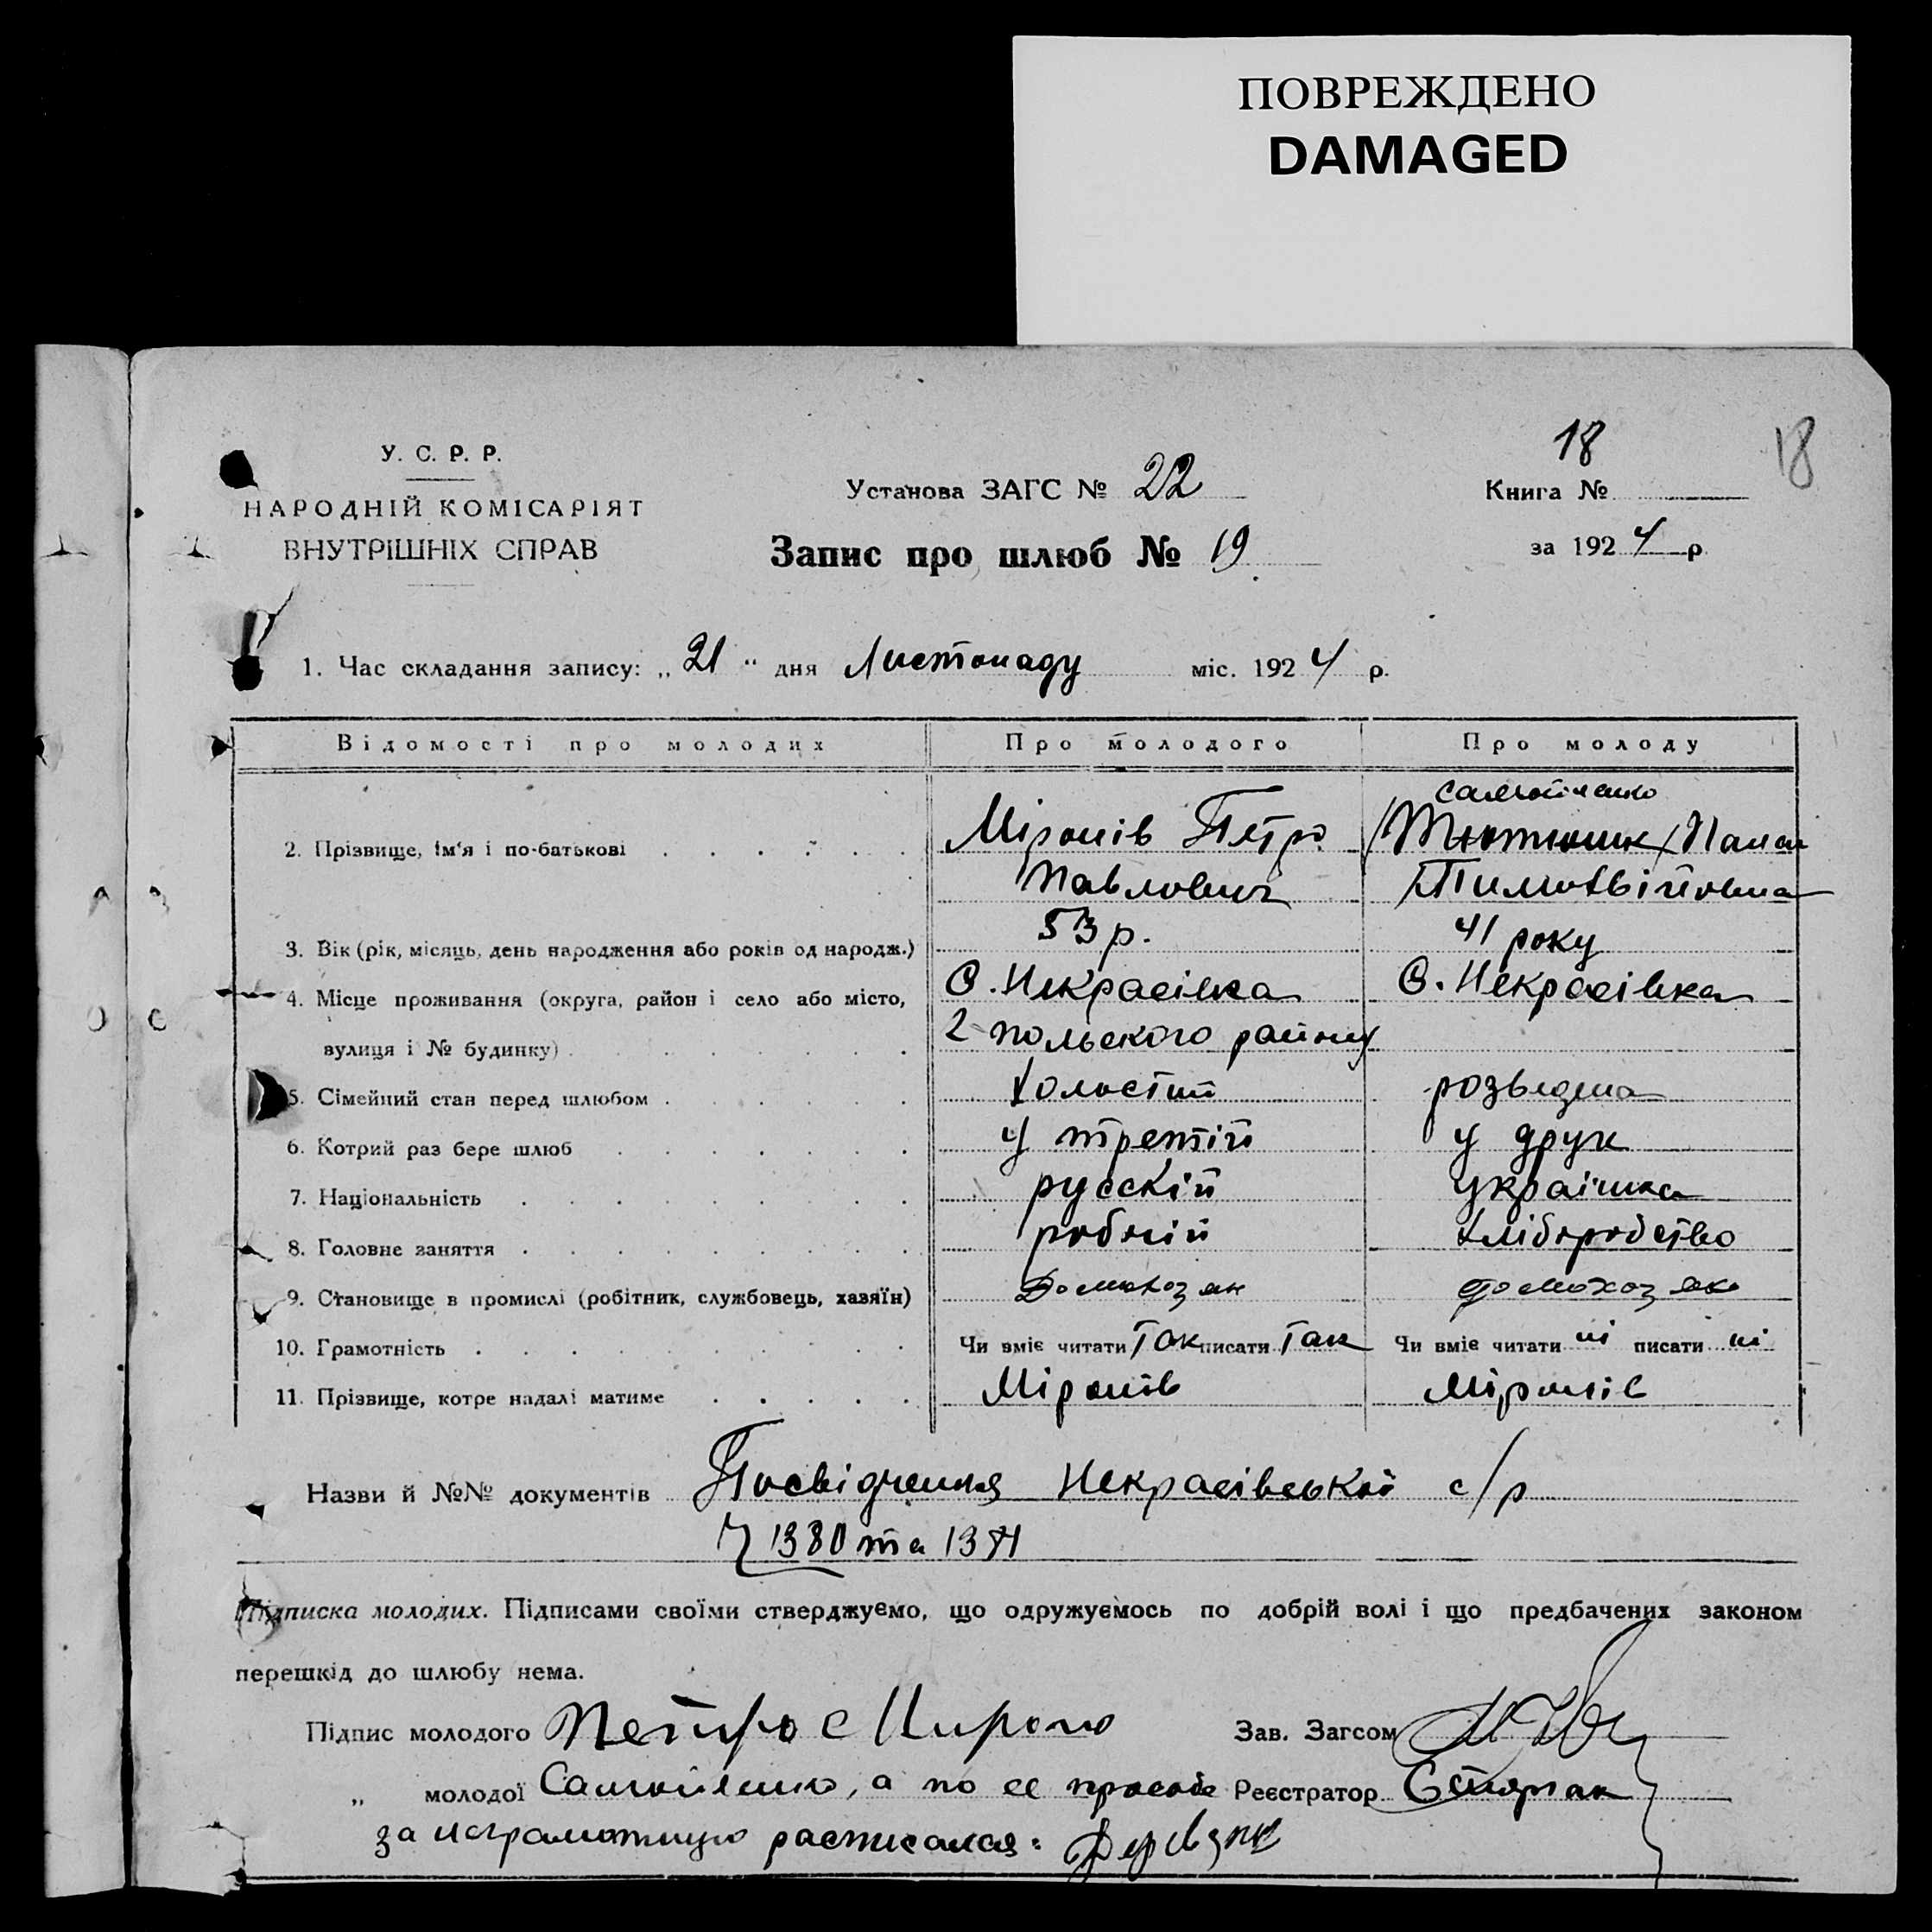 ПОВРЕЖДЕНО
DAMAGED
18
18
У. С. Р. Р.
НАРОДНІЙ КОМІСАРІЯТ
ВНУТРІШНІХ СПРАВ
Установа ЗАГС № 22
Книга №
Запис про шлюб № 19
за 1924 р
1. Час складання запису: „21“ дня Листопаду міс. 1924 р.
Відомості про молодих Про молодого Про молоду
Самойленко
2. Прізвище, ім'я і по-батькові Міронів Петро /Тютюник/
Павлович Тимофвіївна
3. Вік (рік, місяць, день народження або років од народж.) 53 р. 41 року
4. Місце проживання (округа, район і село або місто, С. Некрасівка С. Некрасівка
вулиця і № будинку) 2-польского району
5. Сімейний стан перед шлюбом Холостий розведена
6. Котрий раз бере шлюб у третій у друк
7. Національність русскій українка
8. Головне заняття робочій хліборобство
9. Становище в промислі (робітник, службовець, хазяїн) Домохозяин домохозяйка
10. Грамотність Чи вміє читати Так писати Так Чи вміє читати ні писати ні
11. Прізвище, котре надалі матиме Міронів Міронів
Назви й №№ документів Посвідчення Некрасівської с/р
Ч 1380 та 1371
Підписка молодих. Підписами своїми стверджуємо, що одружуємось по добрій волі і що предбачених законом
перешкід до шлюбу нема.
Підпис молодого Петро Зав. Загсом
„ молодої Самойленко, а по ее просьбе Реєстратор
за неграмотную расписался: